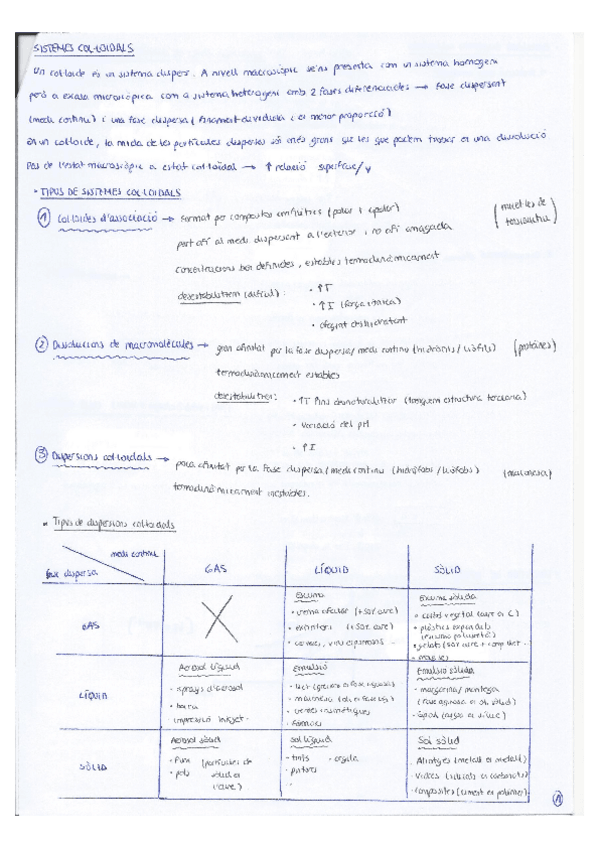 SISTEMES COL·LOIDALS
Un col·loide és un sistema dispers. A nivell macroscòpic se'ns presenta com un sistema homogeni
però a escala microscòpica com a sistema heterogeni amb 2 fases diferenciades → fase dispersant
(medi continu) i una fase dispersa (finament dividida i en menor proporció)
En un col·loide, la mida de les partícules disperses són més grans que les que podem trobar en una dissolució
Pas de l'estat macroscòpic a estat col·loidal → ↑ relació superfície/v
• TIPUS DE SISTEMES COL·LOIDALS
① Col·loides d'associació → format per compostos amfifílics (polar i apolar) (micel·les de tensioactiu)
part afí al medi dispersant a l'exterior i no afí amagada
concentracions ben definides, estables termodinàmicament
desestabilitzem (difícil): • ↑T
• ↑I (força iònica)
• afegint deshidratant
② Dissolucions de macromolècules → gran afinitat per la fase dispersa/medi continu (hidròfils/liòfils) (proteïnes)
termodinàmicament estables
desestabilitzen: • ↑T fins desnaturalitzar (trenquem estructura terciària)
• Variació del pH
• ↑I
③ Dispersions col·loidals → poca afinitat per la fase dispersa/medi continu (hidròfobs/liòfobs) (maionesa)
termodinàmicament inestables.
• Tipus de dispersions col·loidals
medi continu
fase dispersa
GAS
LÍQUID
SÒLID
GAS
Escuma
• crema afaitar (+ aire)
• extintors (+ aire)
• cervesa, vins escumosos
Escuma sòlida
• carbó vegetal (aire en C)
• plàstics expandits
(escuma poliuretà)
• gelats
LÍQUID
Aerosol líquid
• sprays d'aerosol
• boira
impressió inkjet
Emulsió
• llet
• maionesa
• cremes cosmètiques
• fàrmacs
Emulsió sòlida
• margarina/mantega
(fase aquosa en oli sòlid)
• òpal (aigua en sílice)
SÒLID
Aerosol sòlid
• Fum (partícules de
• pols sòlid en
l'aire)
Sol líquid
• tints • argila
• pintures
Sol sòlid
Aliatges (metall en metall)
Vidres
Composites (ciment en polímer)
1